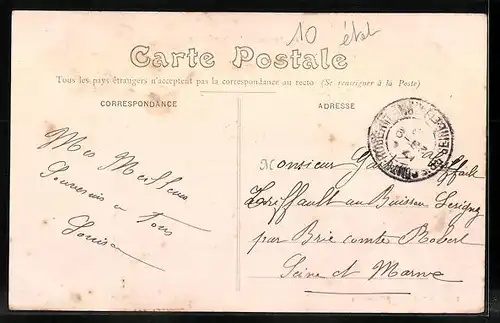 10 état
Carte Postale
Tous les pays étrangers n'acceptent pas la correspondance au recto (Se renseigner à la Poste)
CORRESPONDANCE
ADRESSE
Mes Meilleurs
Souvenirs a Tous
Louisa
Monsieur
au Buisson Lesigny
par Brie comte Robert
Seine et Marne